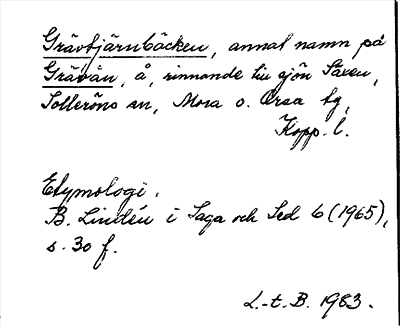 Grävtjärnbäcken, annat namn på
Grävån, å, rinnande till sjön Säxen,
Solleröns sn, Mora o. Orsa tg,
Kopp. l.
Etymologi.
B. Lindén i Saga och Sed 6 (1965),
s. 30 f.
L.-t. B. 1983.